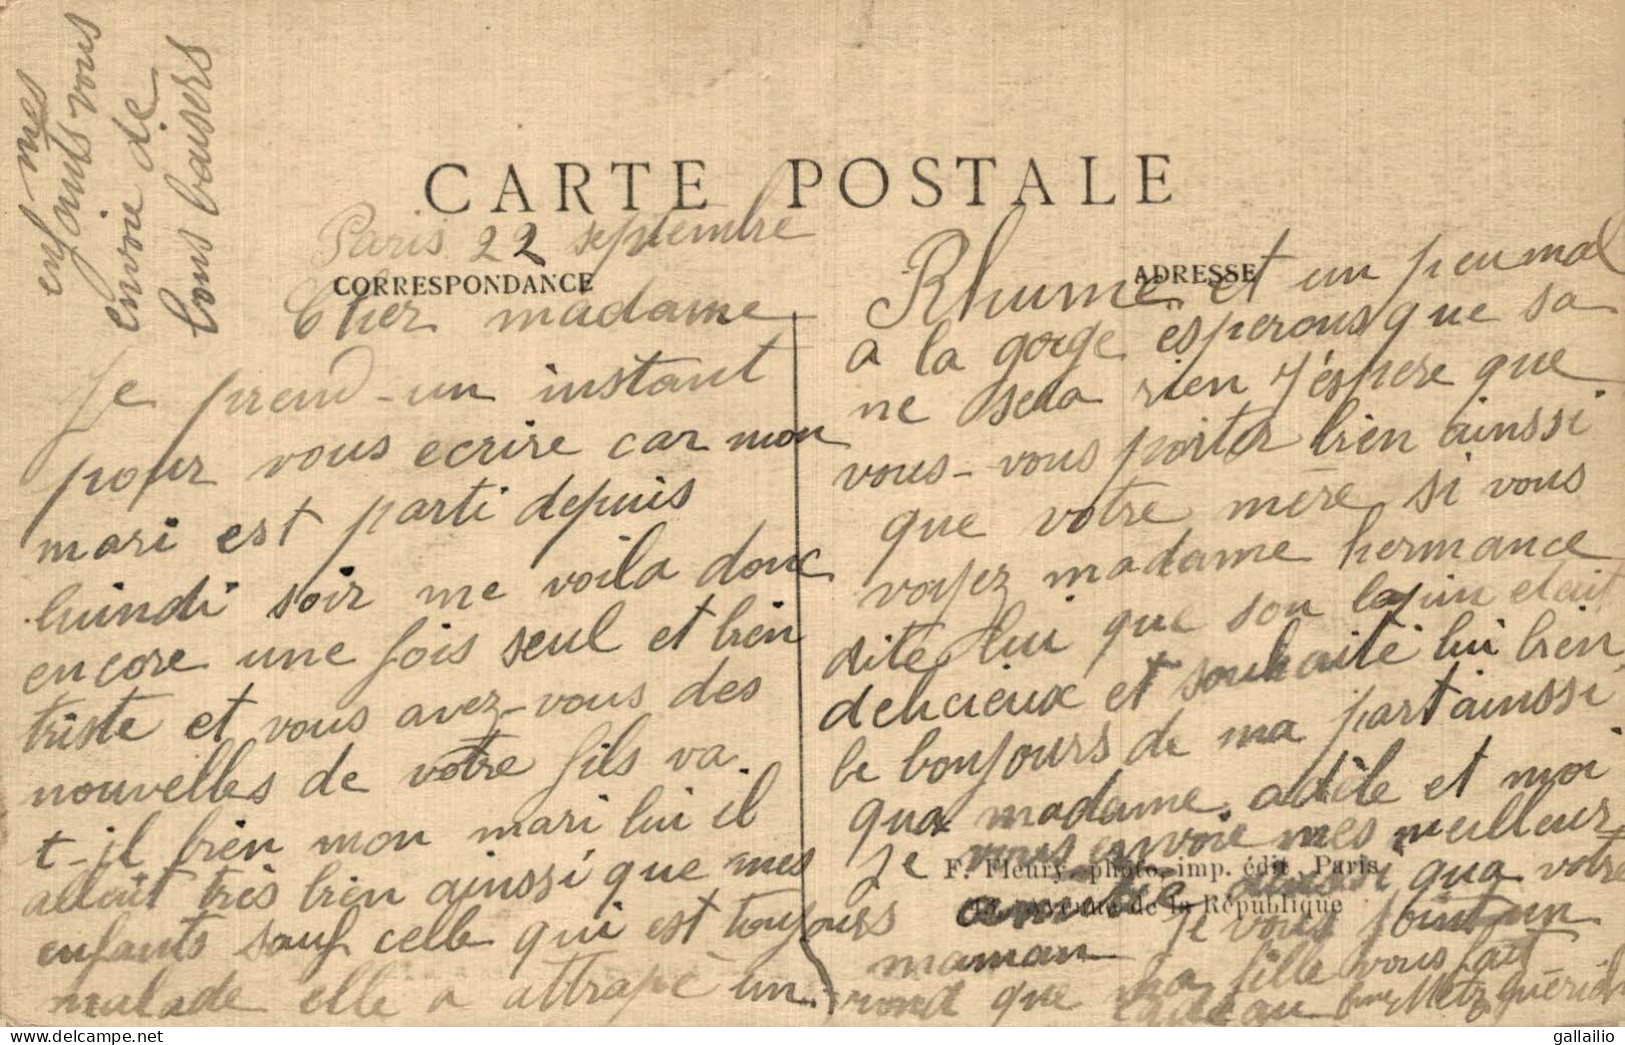 mes
enfants vous
envoie de
bons baisers
CARTE POSTALE
Paris 22 septembre
CORRESPONDANCE
Cher madame
Je prend un instant
pour vous ecrire car mon
mari est parti depuis
luindi soir me voila donc
encore une fois seul et bien
triste et vous avez-vous des
nouvelles de votre fils va
t-il bien mon mari lui il
allait très bien ainssi que mes
enfants sauf celle qui est toujours
malade elle a attrapé un
ADRESSE
Rhume et un peu mal
a la gorge esperons que sa
ne sera rien j'éspere que
vous-vous porter bien ainssi
que votre mère si vous
voyez madame hermance
dite lui que son lapin etait
delicieux et souhaité lui bien
le bonjours de ma part ainssi
qua madame adèle et moi
je vous envoie mes meilleur
F. Fleury, photo. imp. édit., Paris
Avenue de la République
amitié ainssi qua votre
maman je vous joint un
rond que ma fille vous fait
cadeau Mme Metz quérid
gallailio